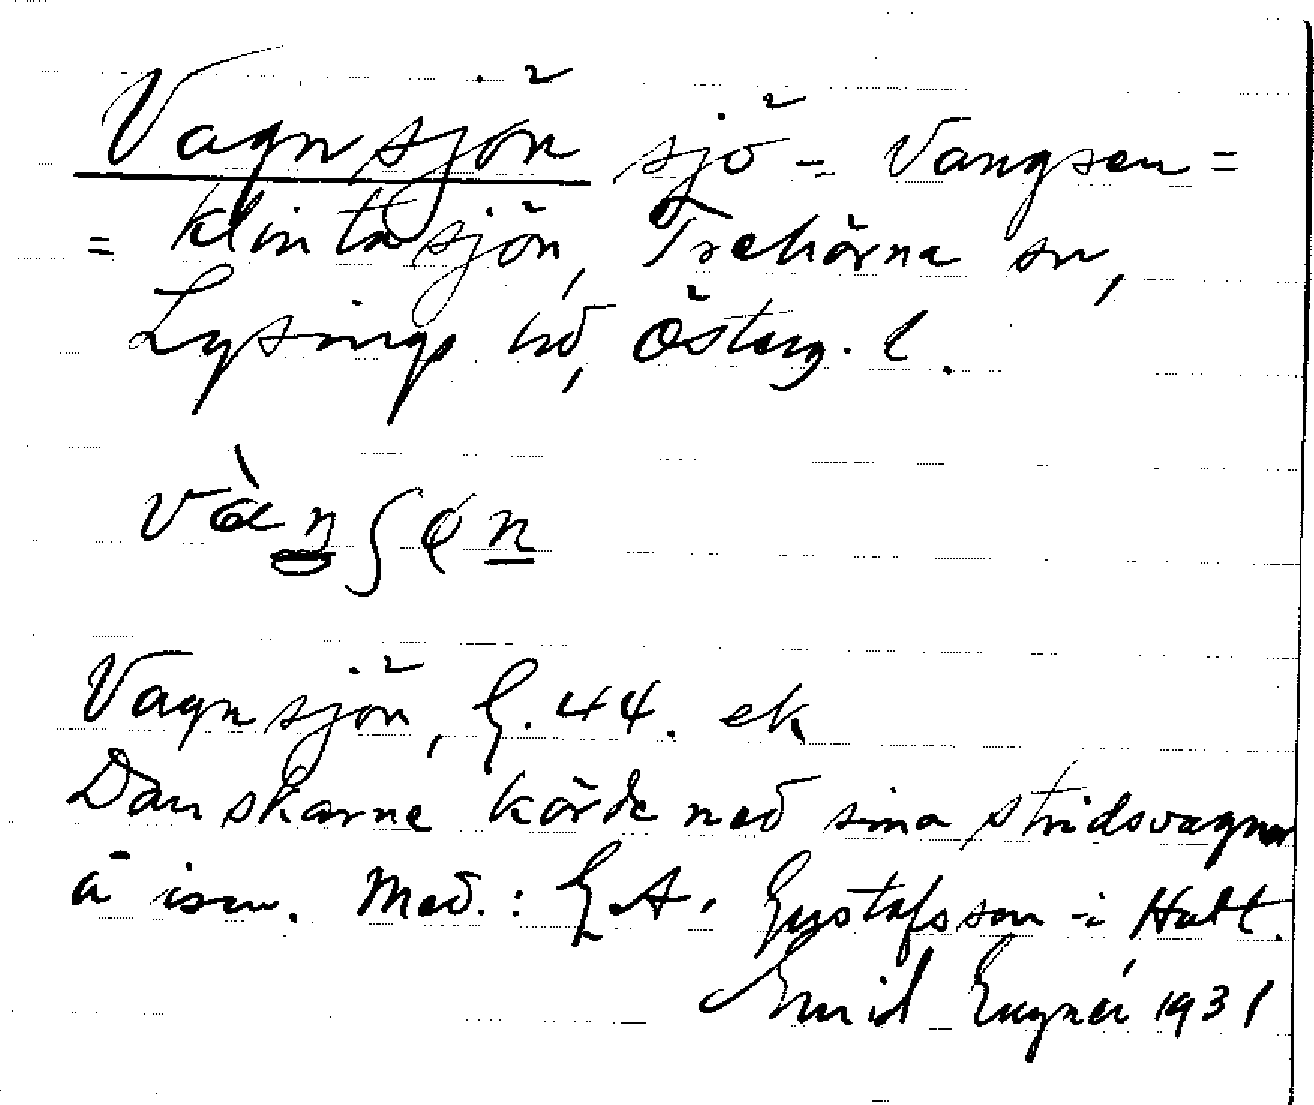 Vagnsjön sjö = Vangsen =
= Klintasjön, Trehörna sn,
Lysings hd, Österg. l.
Vagnsjön, G. 44. ek
Danskarne körde med sina stridsvagnar
å isen. Med.: G. A. Gustafsson i Hult.
Emil 1931